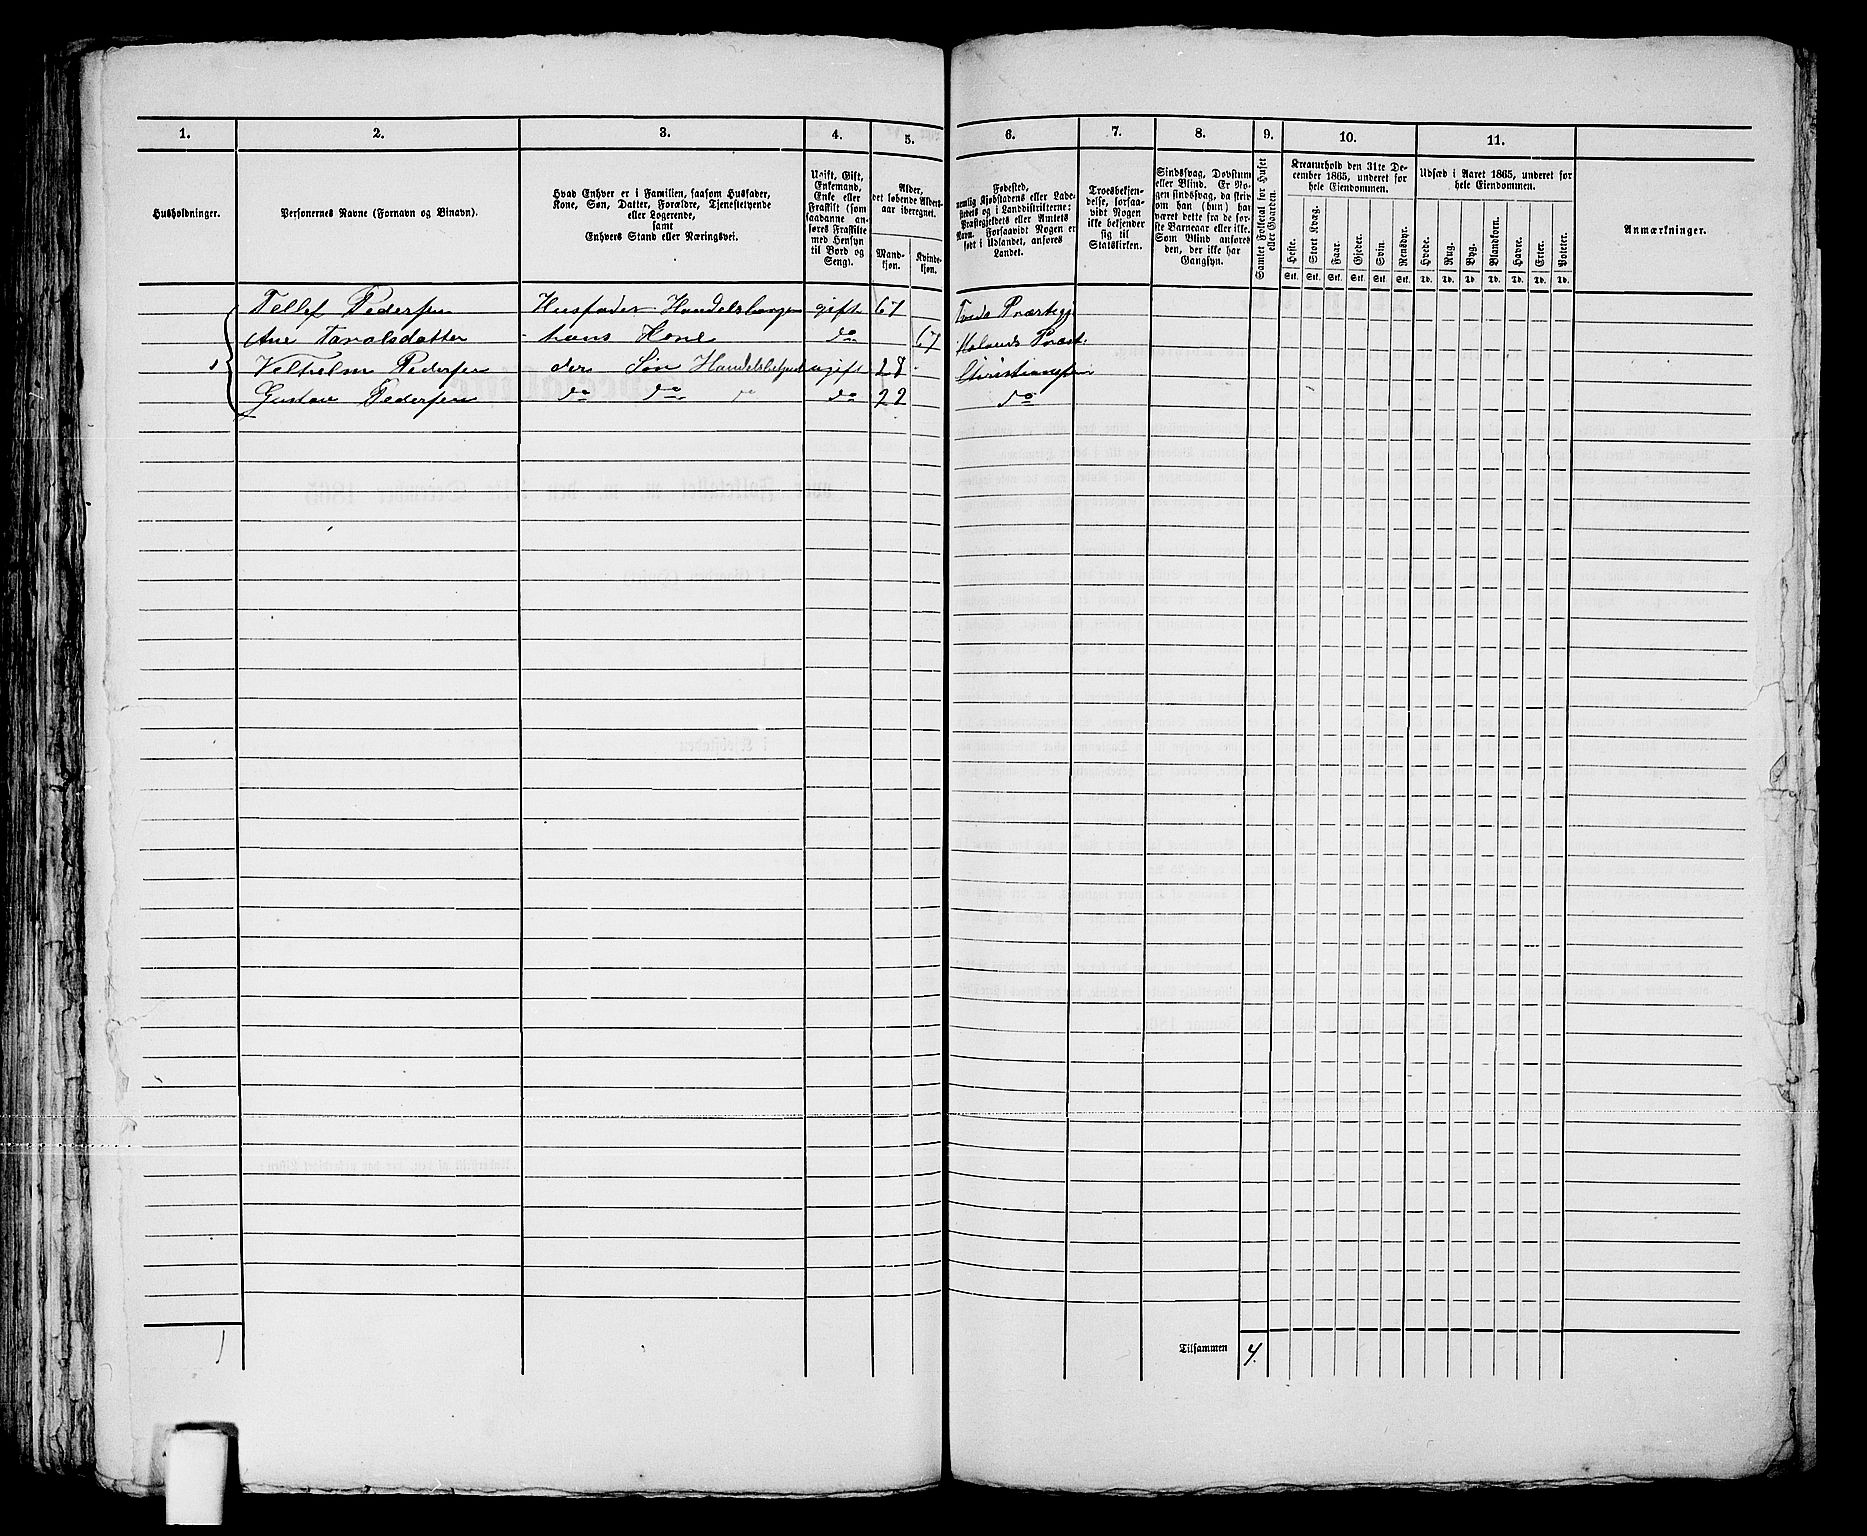 1. 2. 3. 4. 5. 6. 7. 8. 9. 10. 11.
Husholdninger.
Personernes Navne (Fornavn og Binavn).
Hvad Enhver er i Familien, saasom Husfader,
Kone, Søn, Datter, Forældre, Tjenestetyende
eller Logerende,
samt
Enhvers Stand eller Næringsvei.
Ugift, Gift,
Enkemand,
Enke eller
Fraskilt (som
saadanne an-
føres Fraskilte
med Hensyn
til Bord og
Seng).
Alder,
det løbende Alders-
aar iberegnet.
Mand-
kjøn.
Kvinde-
kjøn.
Fødested,
nemlig Kjøbstadens eller Lade-
stedets og i Landdistrikterne:
Præstegjeldets eller Amtets
Navn. Forsaavidt Nogen er
født i Udlandet, anføres
Landet.
Troesbekjen-
delse, forsaa-
vidt Nogen
ikke bekjender
sig til
Statskirken.
Sindssvag, Døvstum
eller Blind. Er No-
gen sindssvag, da skri-
ves om han (hun) har
været dette fra de før-
ste Barneaar eller ikke.
Som Blind anføres
den, der ikke har
Gangsyn.
Samlet Folketal for Huset
eller Gaarden.
Kreaturhold den 31te De-
cember 1865, underet for
hele Eiendommen.
Heste. Stort Kvæg. Faar. Gjeder. Svin. Rensdyr.
Stk. Stk. Stk. Stk. Stk. Stk.
Udsæd i Aaret 1865, underet for
hele Eiendommen.
Hvede. Rug. Byg. Blandkorn. Havre. Erter. Poteter.
Td. Td. Td. Td. Td. Td. Td.
Anmærkninger.
Tellef Pedersen Husfader gift 67 Præstegj
Ane Taralsdatter hans Kone do 67 Præst.
1 Velhelm Pedersen der Søn ugift 28 Christianssan
Gustav Pedersen do do do do 22 do
1
Tilsammen 4.